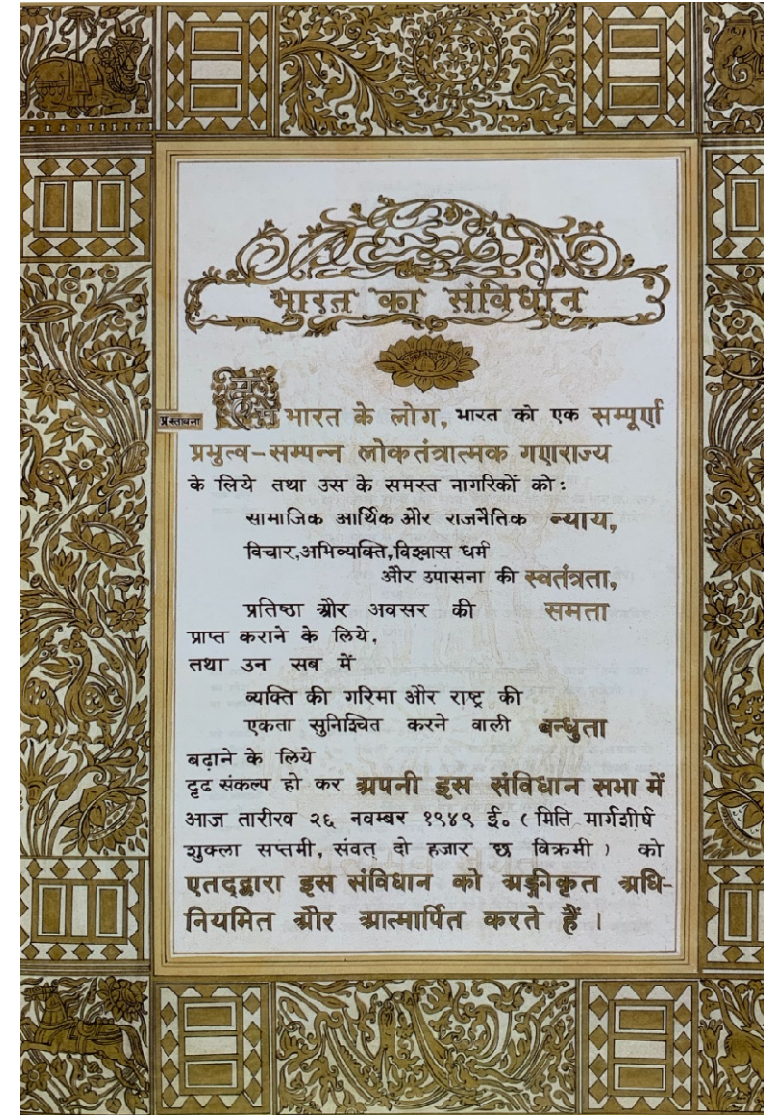 भारत का संविधान
प्रस्तावना
हम भारत के लोग, भारत को एक सम्पूर्ण
प्रभुत्व-सम्पन्न लोकतंत्रात्मक गणराज्य
के लिये तथा उस के समस्त नागरिकों को:
सामाजिक आर्थिक और राजनैतिक न्याय,
विचार,अभिव्यक्ति,विश्वास धर्म
और उपासना की स्वतंत्रता,
प्रतिष्ठा और अवसर की समता
प्राप्त कराने के लिये,
तथा उन सब में
व्यक्ति की गरिमा और राष्ट्र की
एकता सुनिश्चित करने वाली बन्धुता
बढ़ाने के लिये
दृढ संकल्प हो कर अपनी इस संविधान सभा में
आज तारीख २६ नवम्बर १९४९ ई० (मिति मार्गशीर्ष
शुक्ला सप्तमी, संवत् दो हजार छ विक्रमी) को
एतद्द्वारा इस संविधान को अङ्गीकृत अधि-
नियमित और आत्मार्पित करते हैं।